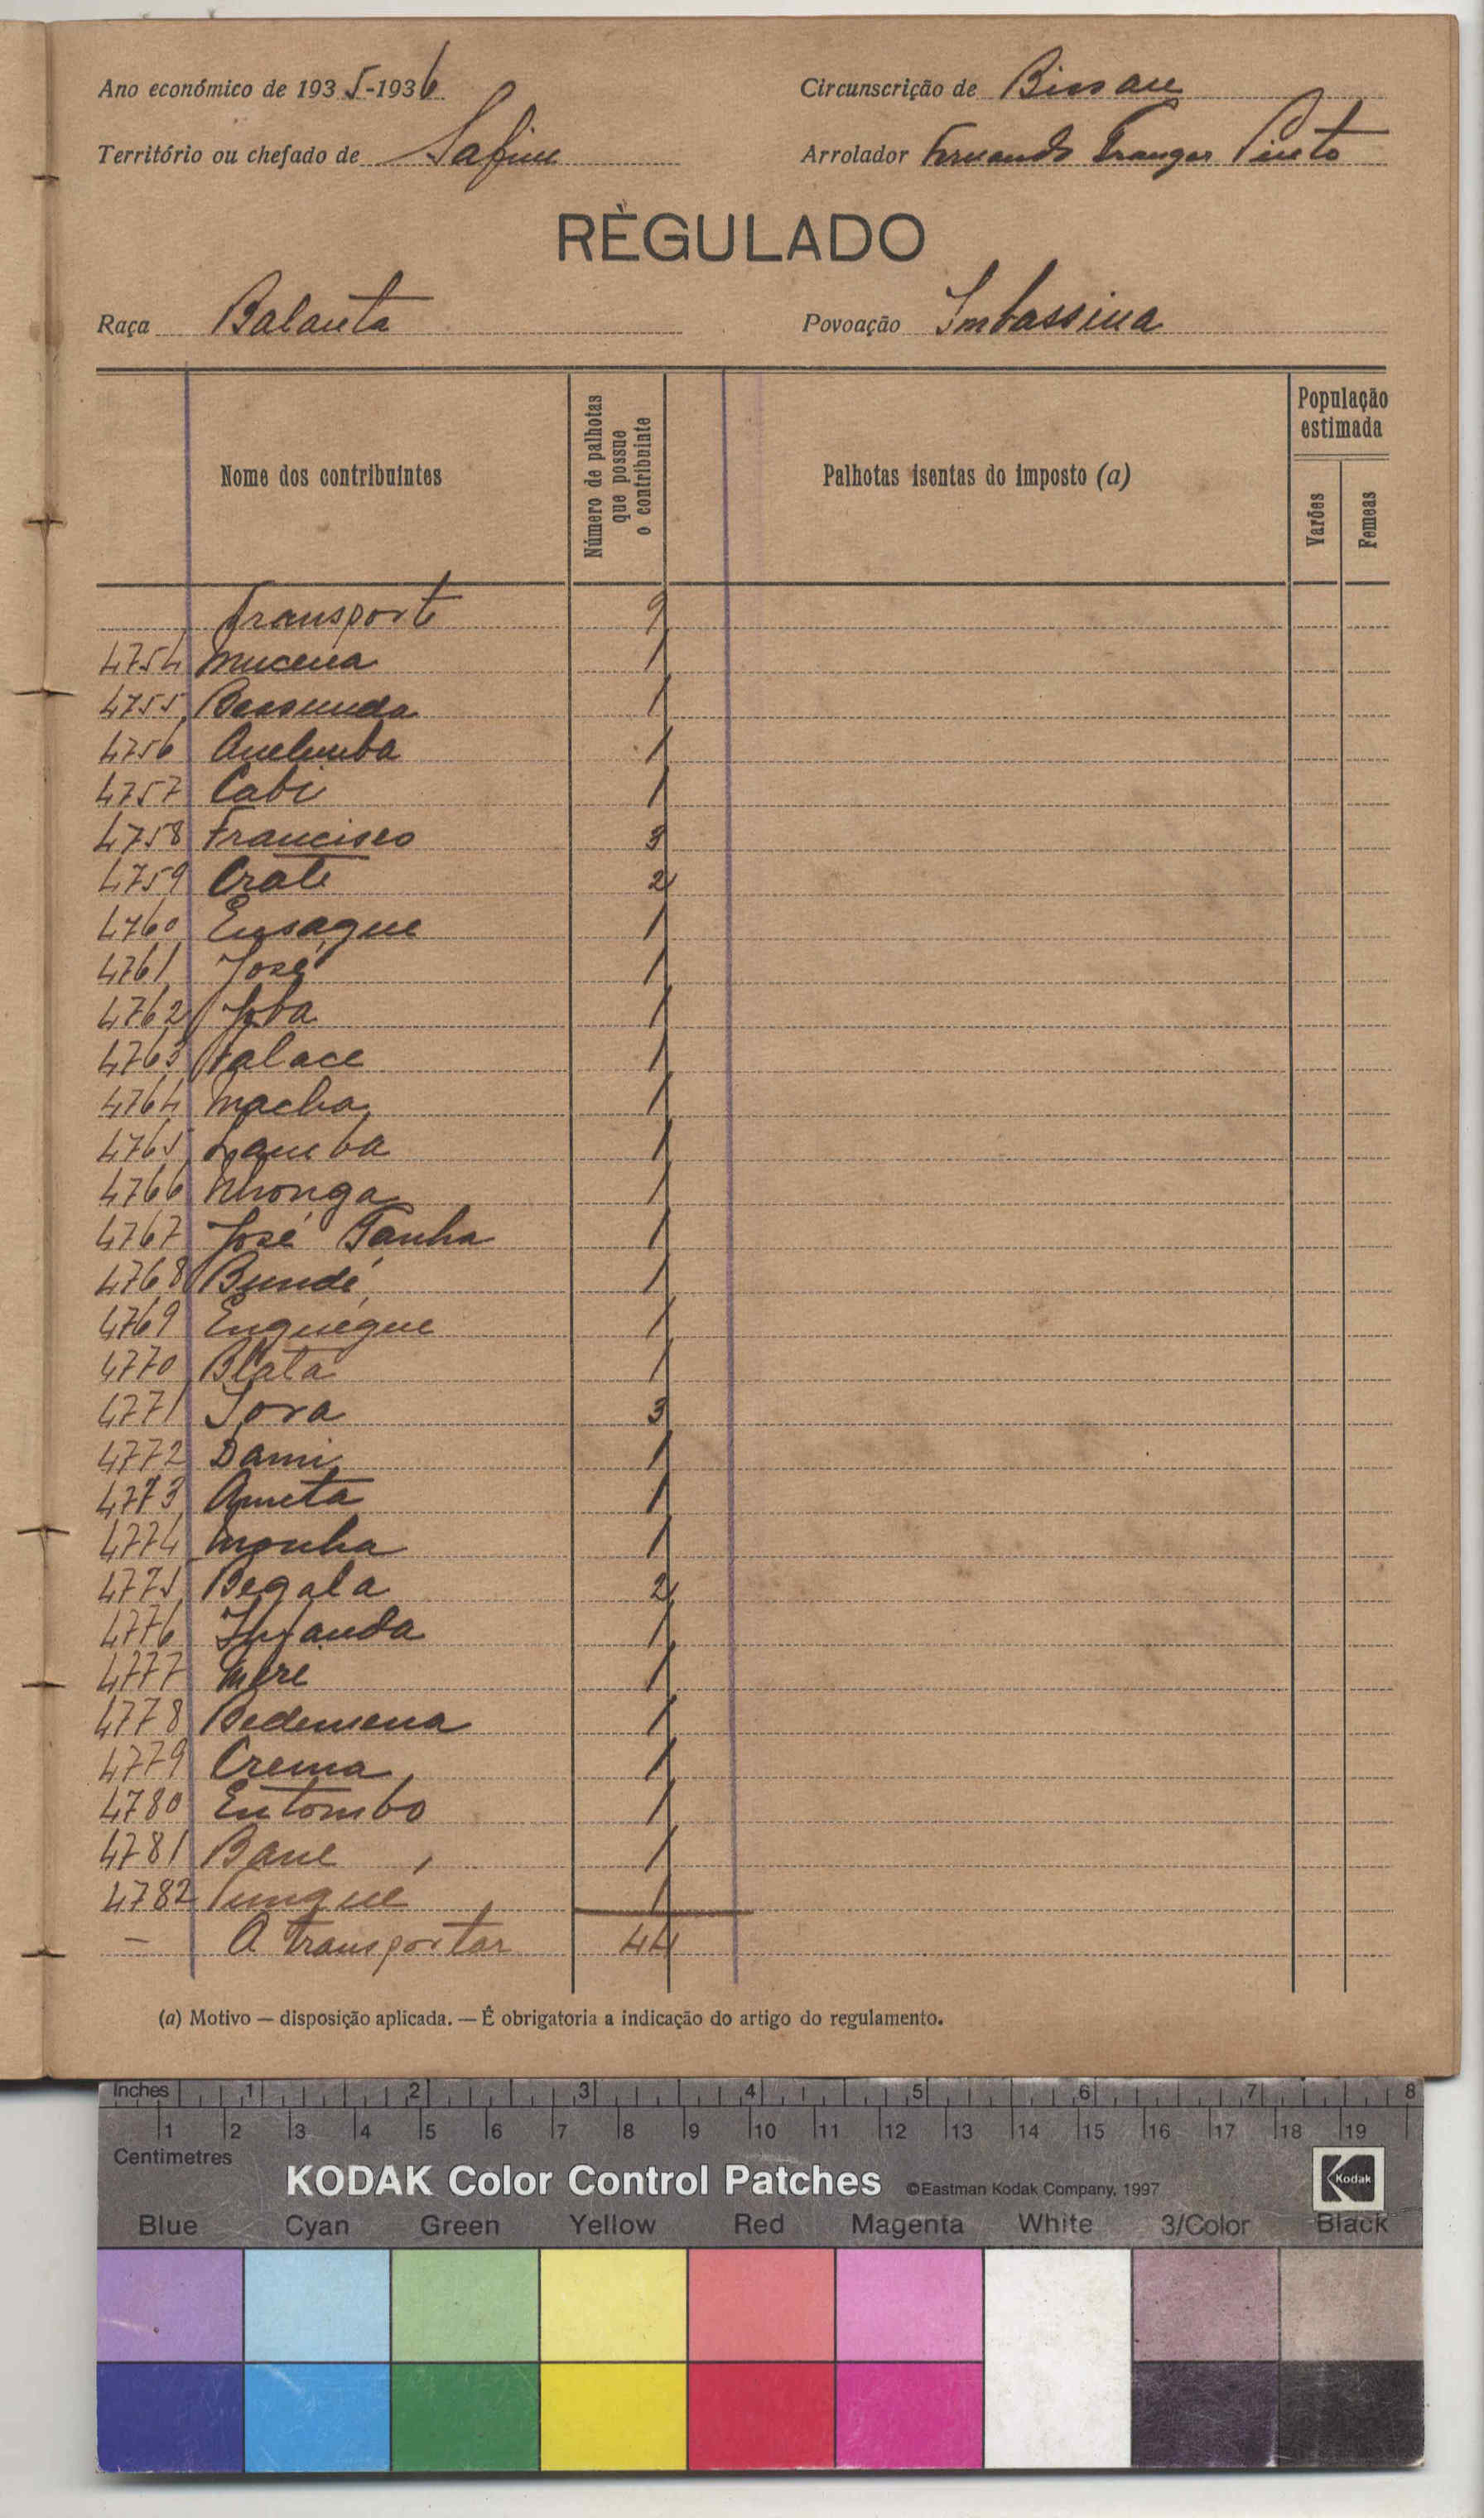 Ano económico de 1935-1936
Circunscrição de Bissau
Território ou chefado de Safim
Arrolador Fernando Pinto
RÈGULADO
Raça Balanta
Povoação Imbassina
Nome dos contribuintes
Número de palhotas que possue o contribuinte
Palhotas isentas do imposto (a)
População estimada
Varões
Femeas
Transporte 9
4754 Mucena 1
4755 Bessunda 1
4756 1
4757 Cabi 1
4758 Francisco 3
4759 Crale 2
4760 Ensaque 1
4761 José 1
4762 Joba 1
4763 1
4764 Macha 1
4765 Lamba 1
4766 Nhonga 1
4767 José Tanha 1
4768 Bundé 1
4769 Enguegue 1
4770 Blata 1
4771 Sora 3
4772 Dami 1
4773 Ameta 1
4774 Monha 1
4775 Begala 2
4776 Infanda 1
4777 Mere 1
4778 Bedemena 1
4779 Crema 1
4780 Entombo 1
4781 Bane 1
4782 1
— A transportar 44
(a) Motivo — disposição aplicada. — É obrigatoria a indicação do artigo do regulamento.
Inches 1 2 3 4 5 6 7 8
1 2 3 4 5 6 7 8 9 10 11 12 13 14 15 16 17 18 19
Centimetres
KODAK Color Control Patches ©Eastman Kodak Company, 1997 Kodak
Blue Cyan Green Yellow Red Magenta White 3/Color Black